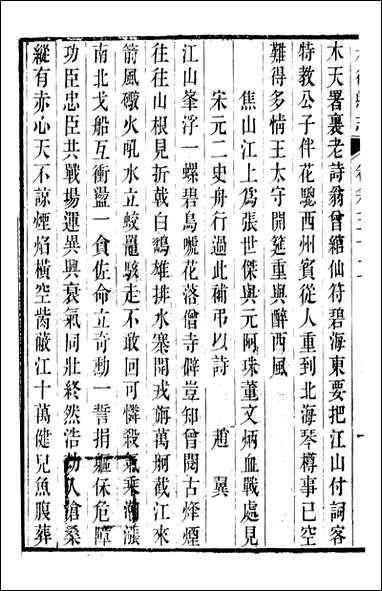 木天署裏老詩翁曾綰仙符碧海東要把江山付詞客
特教公子伴花驄西州賓從人重到北海琴樽事已空
難得多情王太守開筵重與醉西風
焦山江上爲張世傑與元阿珠董文炳血戰處見
宋元二史舟行過此補弔以詩　趙翼
江山峯浮一螺碧鳥嘵花落僧寺僻豈知曾閱古烽煙
往往山根見折戟白鷂雄排水寨開戎旃萬舸截江來
箭風礮火吼水立蛟鼉駭走不敢回可憐殺氣乘潮漲
南北戈船互衝盪一貪佐命立奇勳一誓捐軀保危障
功臣忠臣共戰場運異興衰氣同壯終然浩劫入滄桑
縱有赤心天不諒煙焰橫空胔蔽江十萬健兒魚腹葬